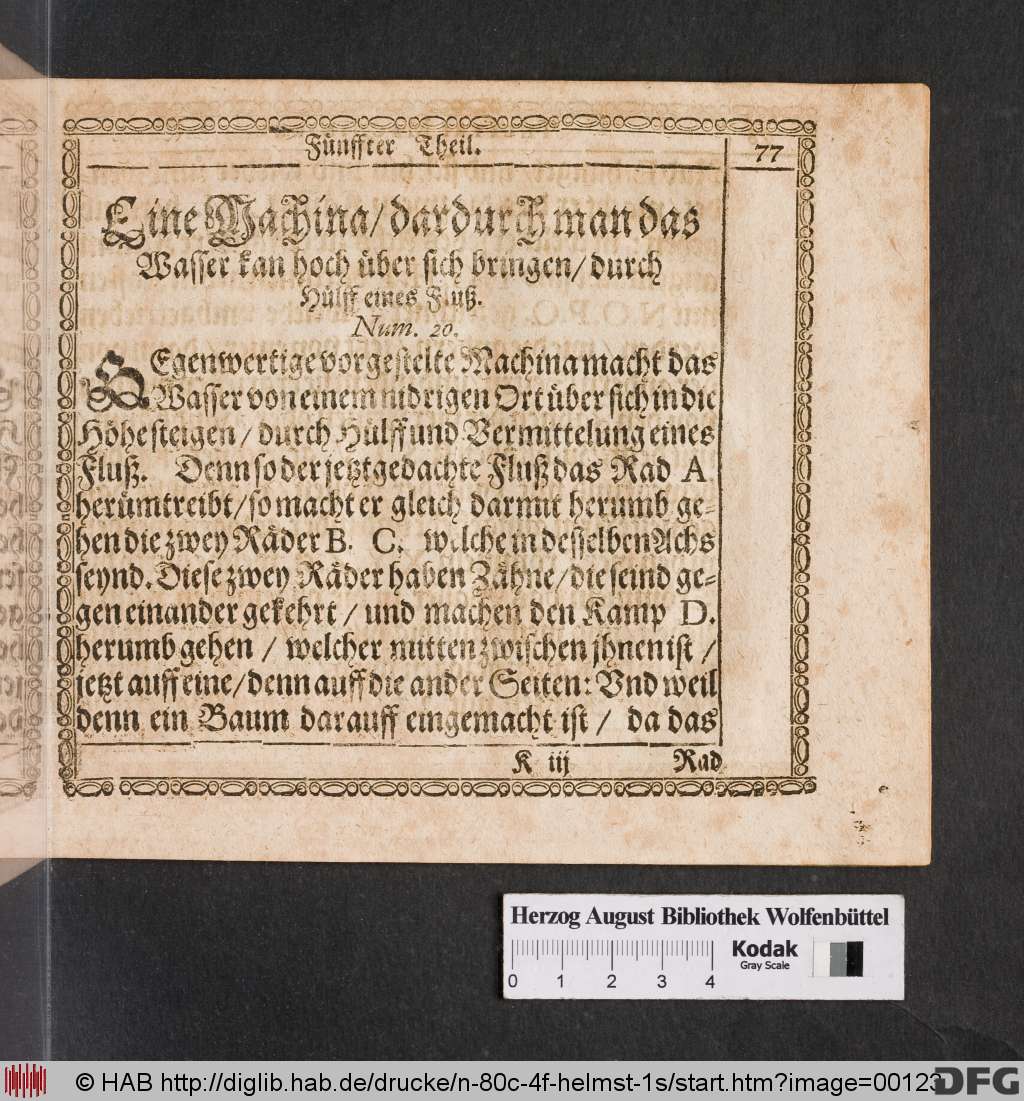 Fünffter Theil.
77
Eine Machina/ dardurch man das
Wasser kan hoch über sich bringen/ durch
Hülff eines Fluß.
Num. 20.
GEgenwertige vorgestelte Machina macht das
Wasser von einem nidrigen Ort über sich in die
Höhe steigen/ durch Hülff und Vermittelung eines
Fluß. Denn so der jetztgedachte Fluß das Rad A
herümtreibt/ so macht er gleich darmit herumb ge⸗
hen die zwey Räder B. C. welche in desselben Achs
seynd. Diese zwey Räder haben Zähne/ die seind ge⸗
gen einander gekehrt/ und machen den Kamp D.
herumb gehen/ welcher mitten zwischen jhnen ist/
jetzt auff eine/ denn auff die ander Seiten: Vnd weil
denn ein Baum darauff eingemacht ist/ da das
K iij
Rad
Herzog August Bibliothek Wolfenbüttel
Kodak
Gray Scale
0 1 2 3 4
© HAB http://diglib.hab.de/drucke/n-80c-4f-helmst-1s/start.htm?image=00123
DFG